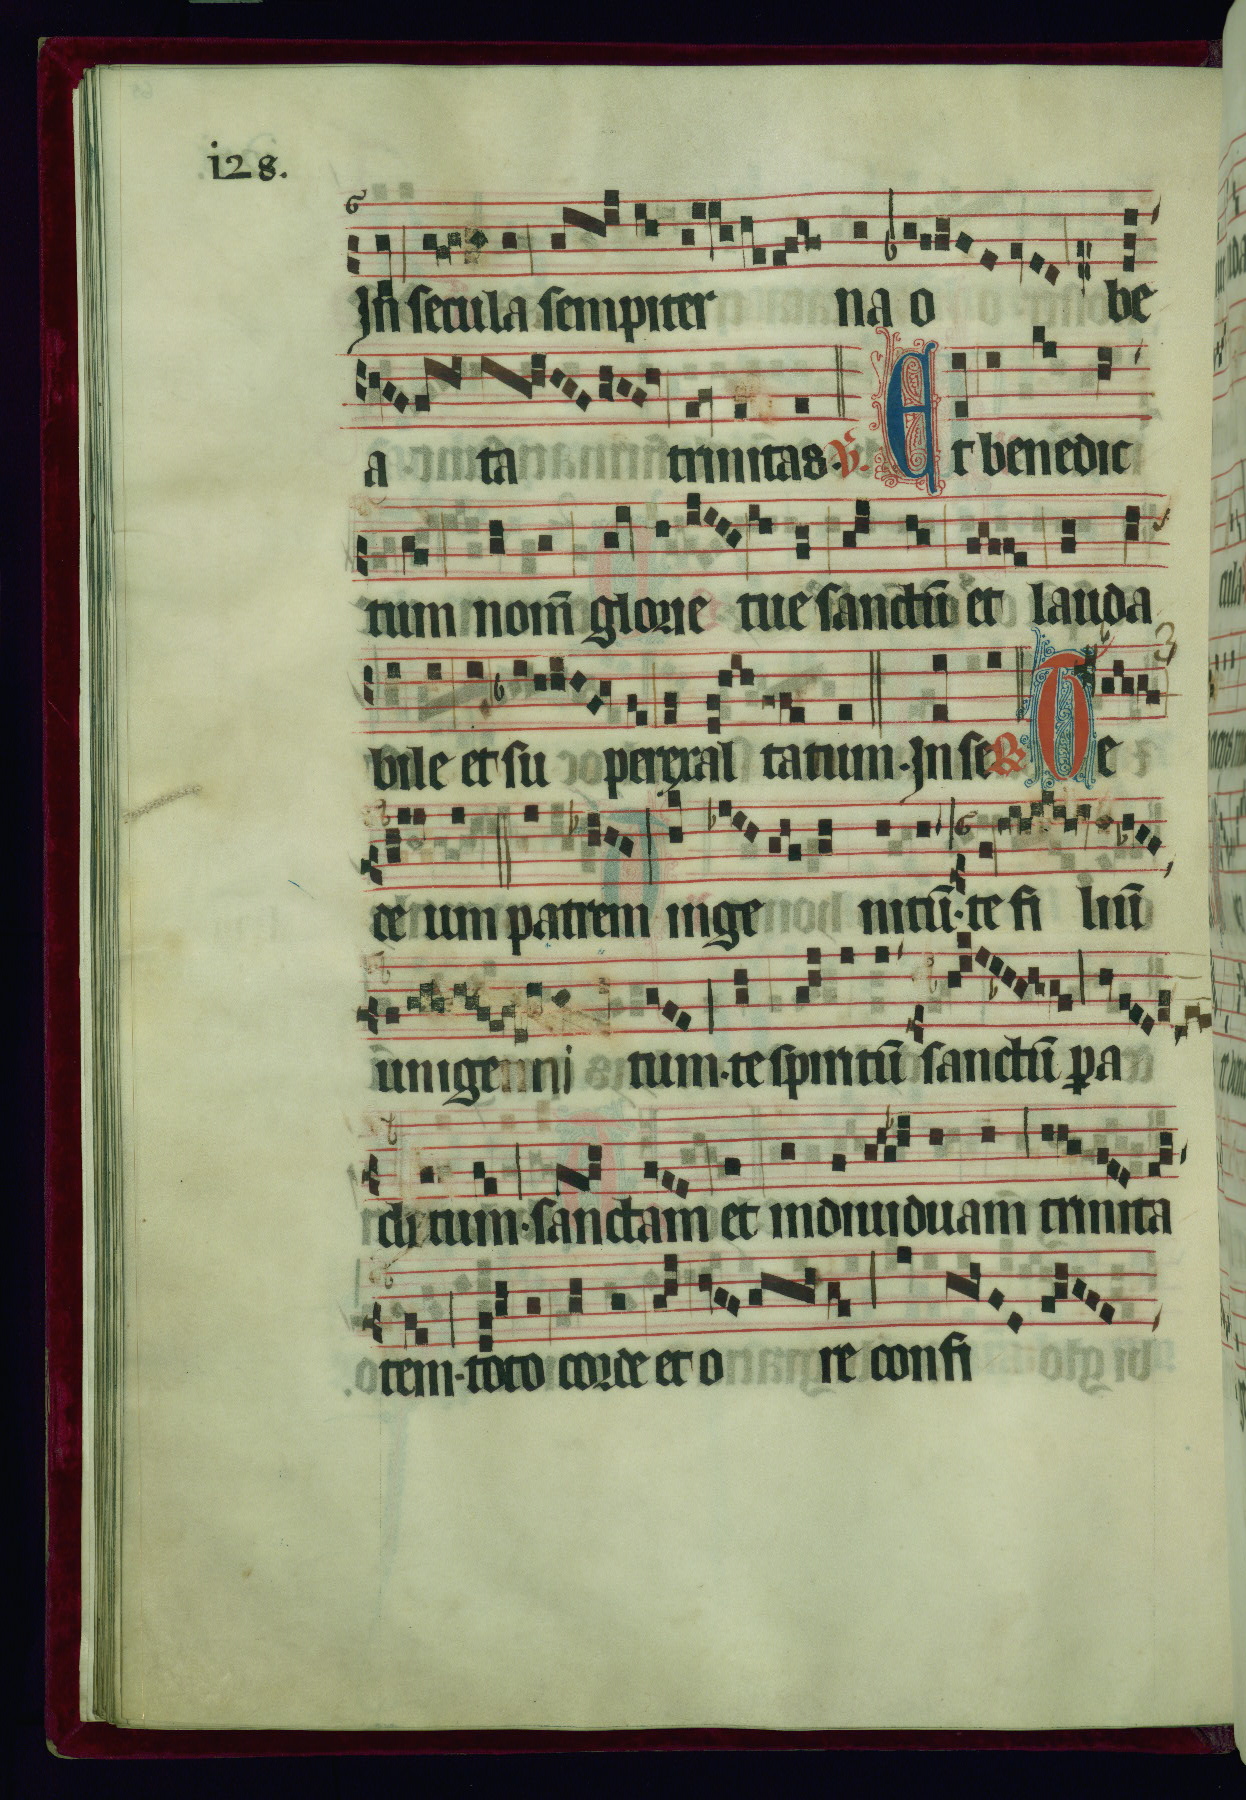 i28.
In secula sempiter na o be
a ta trinitas. V. Et benedic
tum nom̄ glorie tue sanctū et lauda
bile et su perexal tatum. In se R De
te um patrem inge nitū. te fi liū
unigeni tum. te spiritū sanctū pa
cli tum. sanctam et indiuiduam trinita
tem. toto corde et o re confi